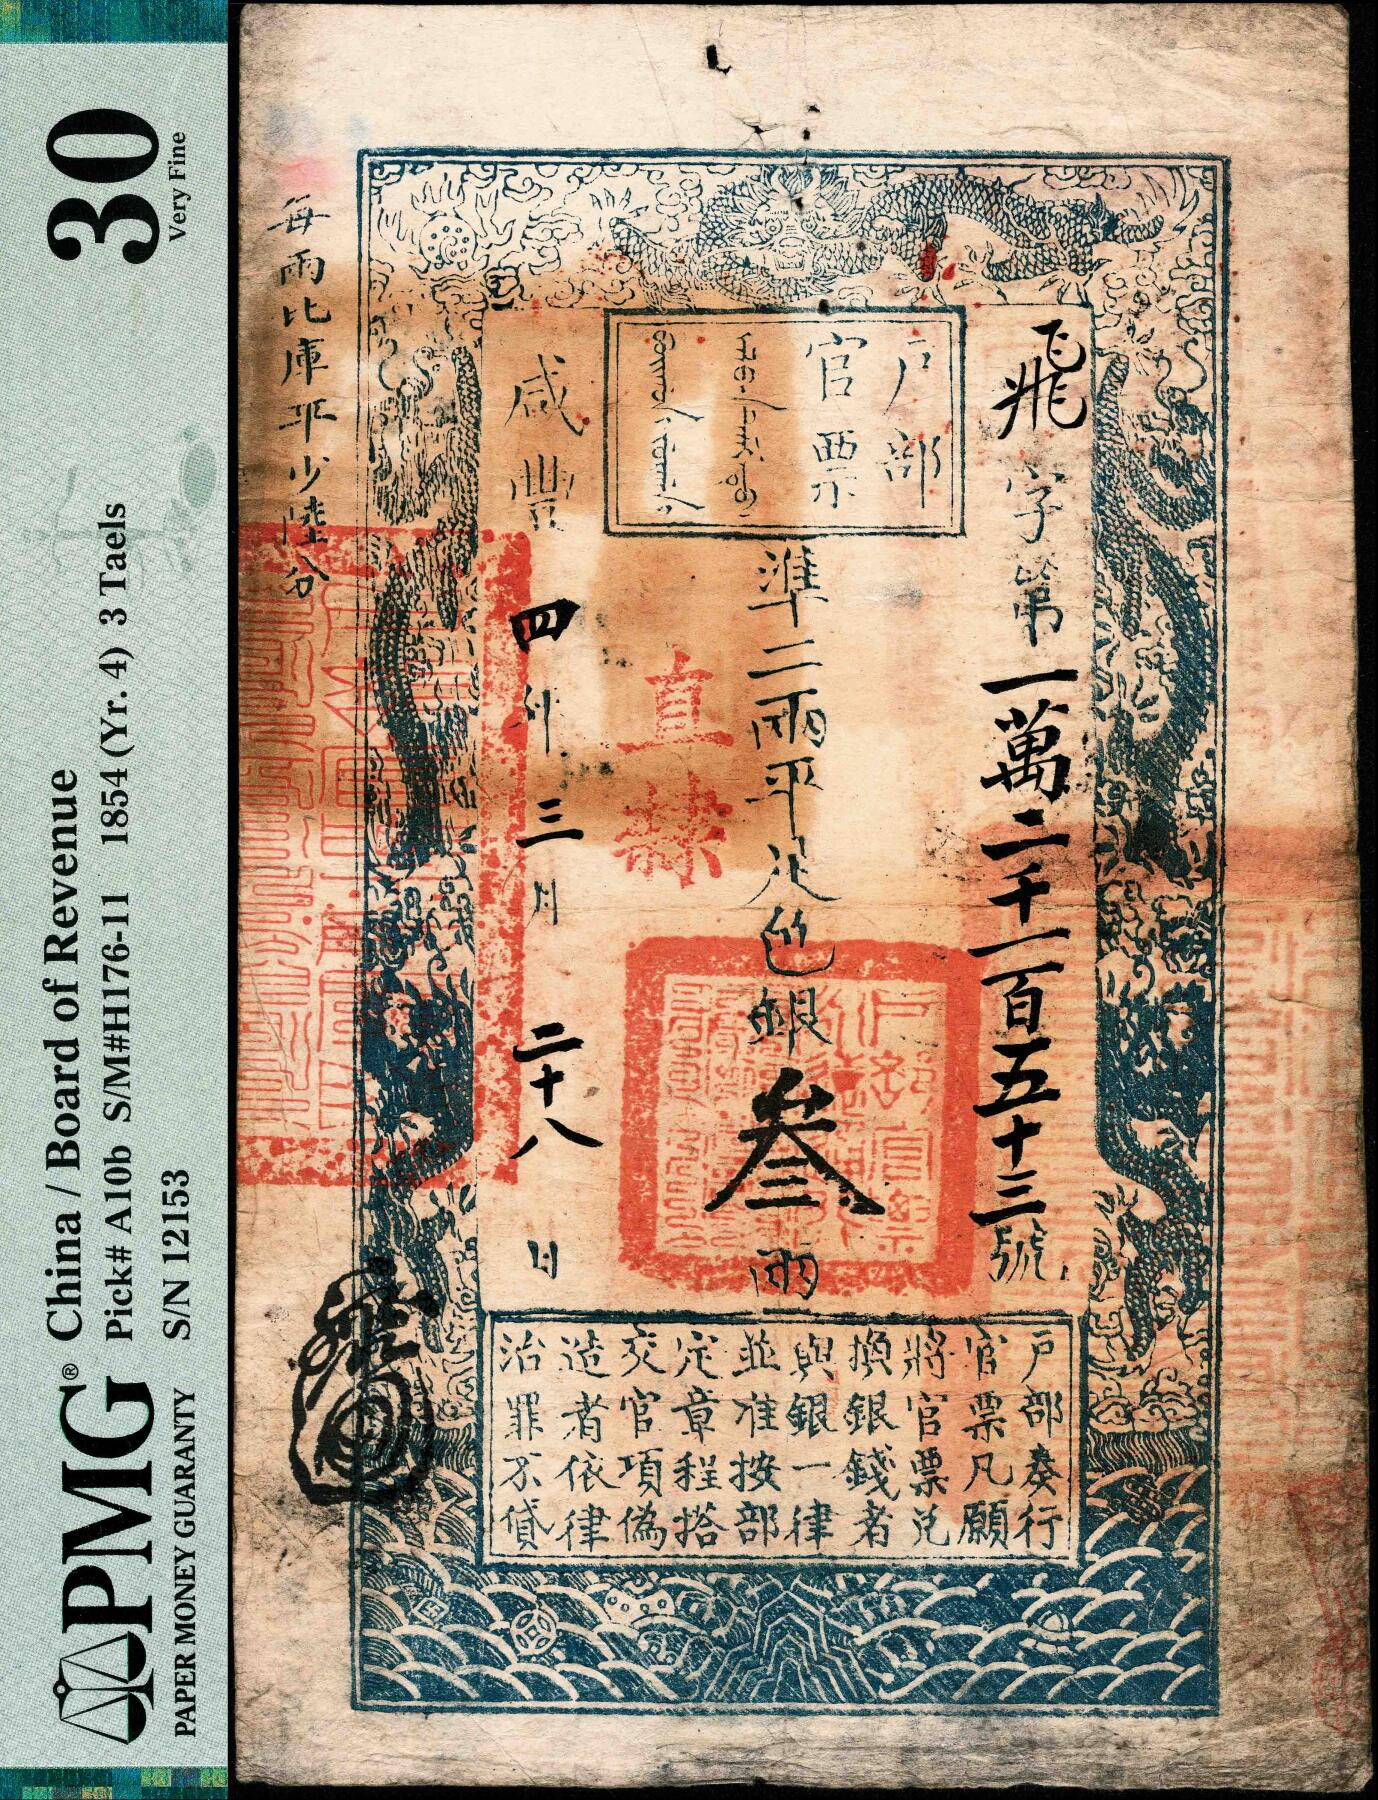 PMG® China / Board of Revenue
Pick# A10b S/M#H176-11 1854 (Yr. 4) 3 Taels
PAPER MONEY GUARANTY S/N 12153
30
Very Fine
飛字第一萬二千一百五十三號
戶部
官票
準二兩平足色銀叁兩
直隸
咸豐四年三月二十八日
每兩比庫平少陸分
戶部奏行
官票凡願
將官票兌
換銀錢者
與銀一律
並准按部
定章程搭
交官項偽
造者依律
治罪不貸